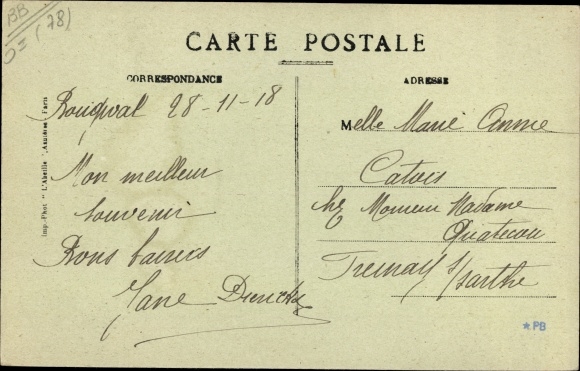 BB
(78)
CARTE POSTALE
CORRESPONDANCE
ADRESSE
Imp.-Phot "L'Abeille", Asnières-Paris
28-11-18
Mon meilleur
souvenir
Bons baisers
Jane
Melle Marie Annie
chez Monsieur Madame
s/Sarthe
*PB